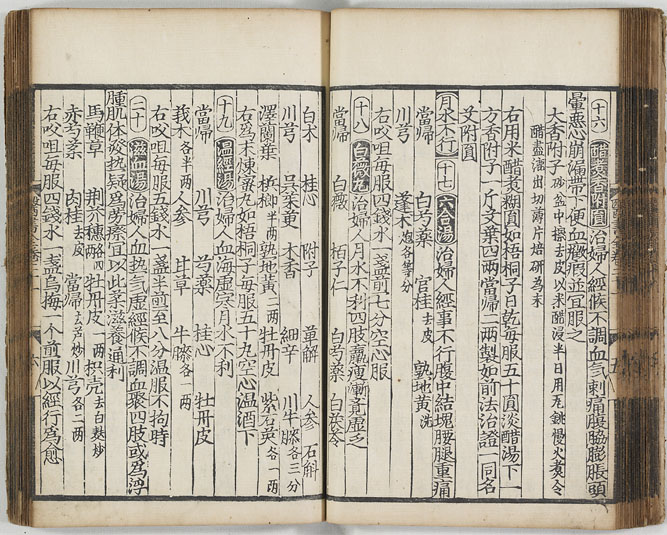 十六 醋煑香附圓 治婦人經候不調血氣刺痛腹脇膨脹頭
暈惡心崩漏帶下便血癥瘕並宜服之
大香附子 砂盆中擦去皮以米醋浸半日用瓦銚慢火煑令
醋盡漉出切薄片焙研為末
右用米醋煑糊圓如梧桐子日乾每服五十圓淡醋湯下一
方香附子一斤艾葉四兩當歸二兩製如前法治證一同名
艾附圓
月水不行 十七 六合湯 治婦人經事不行腹中結塊腰腿重痛
當歸 白芍藥 官桂去皮 熟地黃洗
川芎 蓬朮炮各等分
右㕮咀每服四錢水一盞煎七分空心服
十八 白薇丸 治婦人月水不利四肢羸瘦漸覺虛乏
當歸 白薇 柏子仁 白芍藥 白茯苓
白朮 桂心 附子 萆薢 人參 石斛
川芎 吳茱萸 木香 細辛 川牛膝各三分
澤蘭葉 檳榔半兩 熟地黃二兩 牡丹皮 紫石英各一兩
右為末煉蜜丸如梧桐子每服五十九空心温酒下
十九 温經湯 治婦人血海虛寒月水不利
當歸 川芎 芍藥 桂心 牡丹皮
莪朮各半兩 人參 甘草 牛膝各一兩
右㕮咀每服五錢水一盞半煎至八分温服不拘時
二十 滋血湯 治婦人血熱氣虛經候不調血聚四肢或為浮
腫肌体發热疑為勞瘵宜以此藥滋養通利
馬鞭草 荆芥穗各四兩 牡丹皮一兩 枳壳去白麩炒
赤芍藥 肉桂去皮 當歸去芦炒 川芎各二兩
右㕮咀每服四錢水一盞烏梅一个煎服以經行為愈